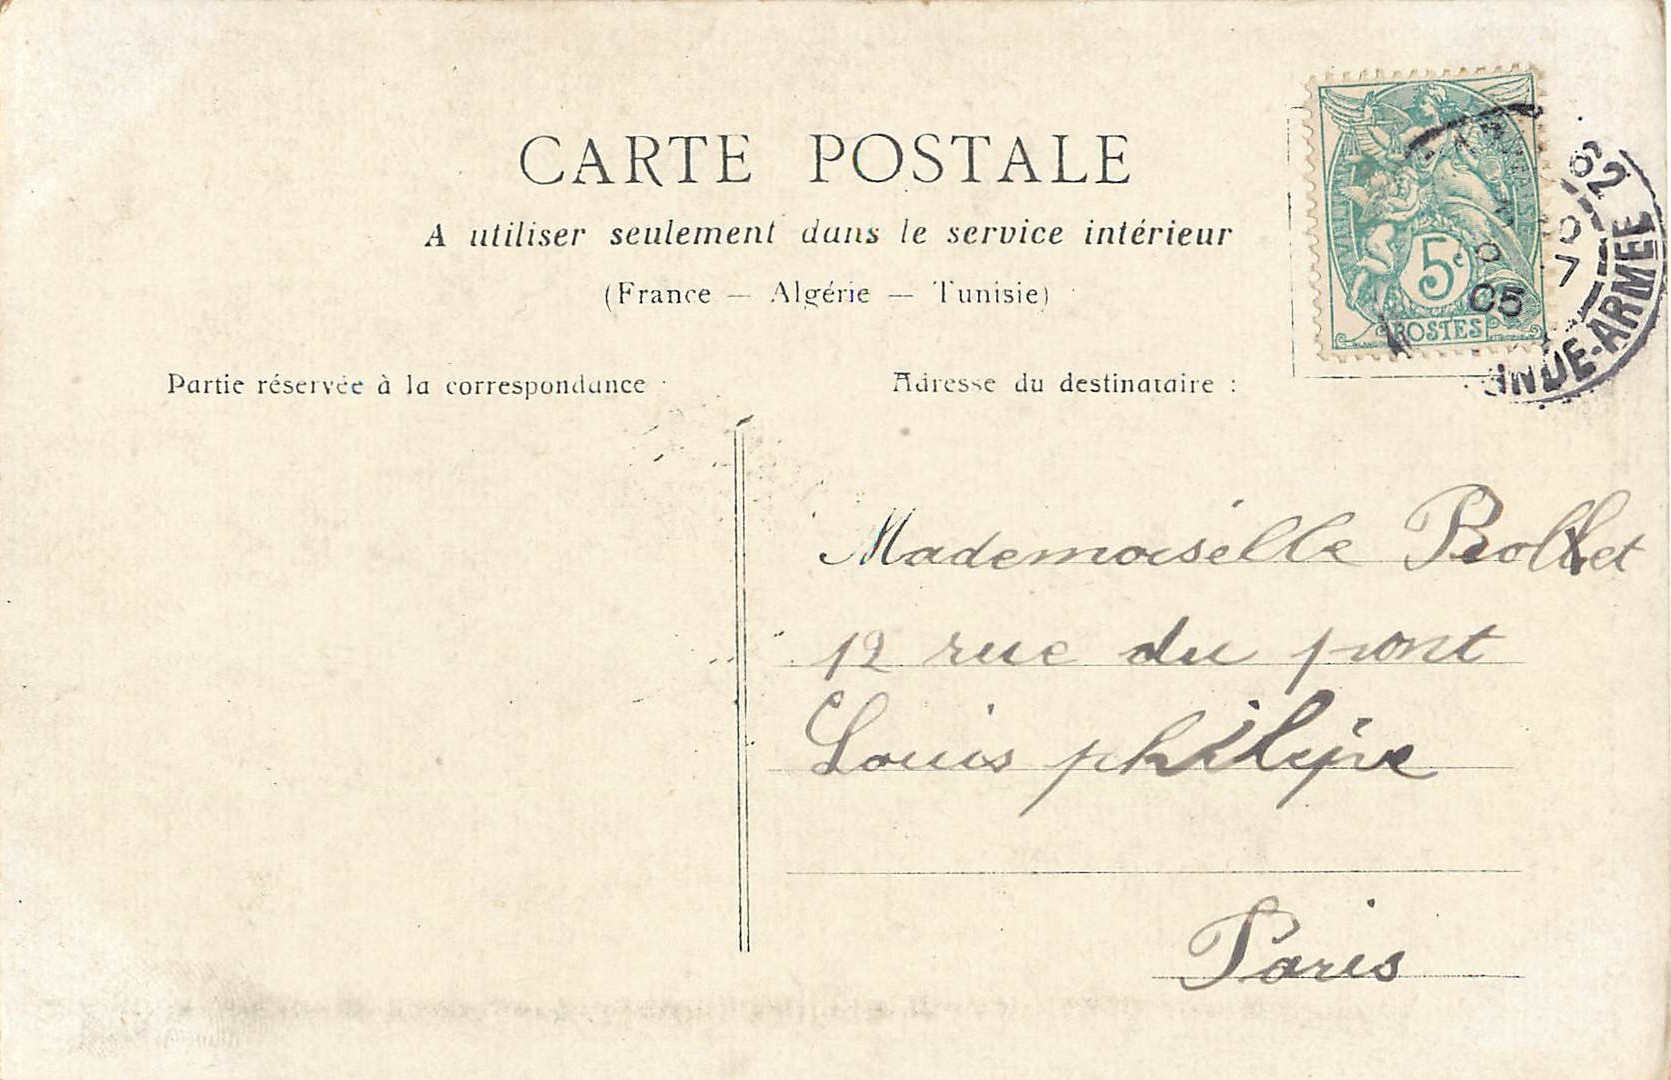 CARTE POSTALE
A utiliser seulement dans le service intérieur
(France — Algérie — Tunisie)
5c
POSTES
62
05
7
ANDE-ARMEE
Partie réservée à la correspondance
Adresse du destinataire :
Mademoiselle Bollet
12 rue du pont
Louis philipe
Paris